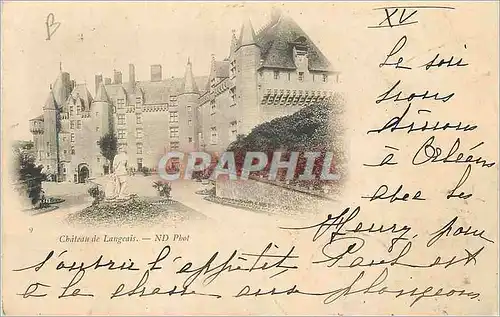 B
XV
Le soir
nous
dînons
à Orléans
avec les
Henry, pour
CPARAMA
9
Château de Langeais. — ND Phot
s'ouvrir l'appétit Paul est
à la chasse aux plongeons